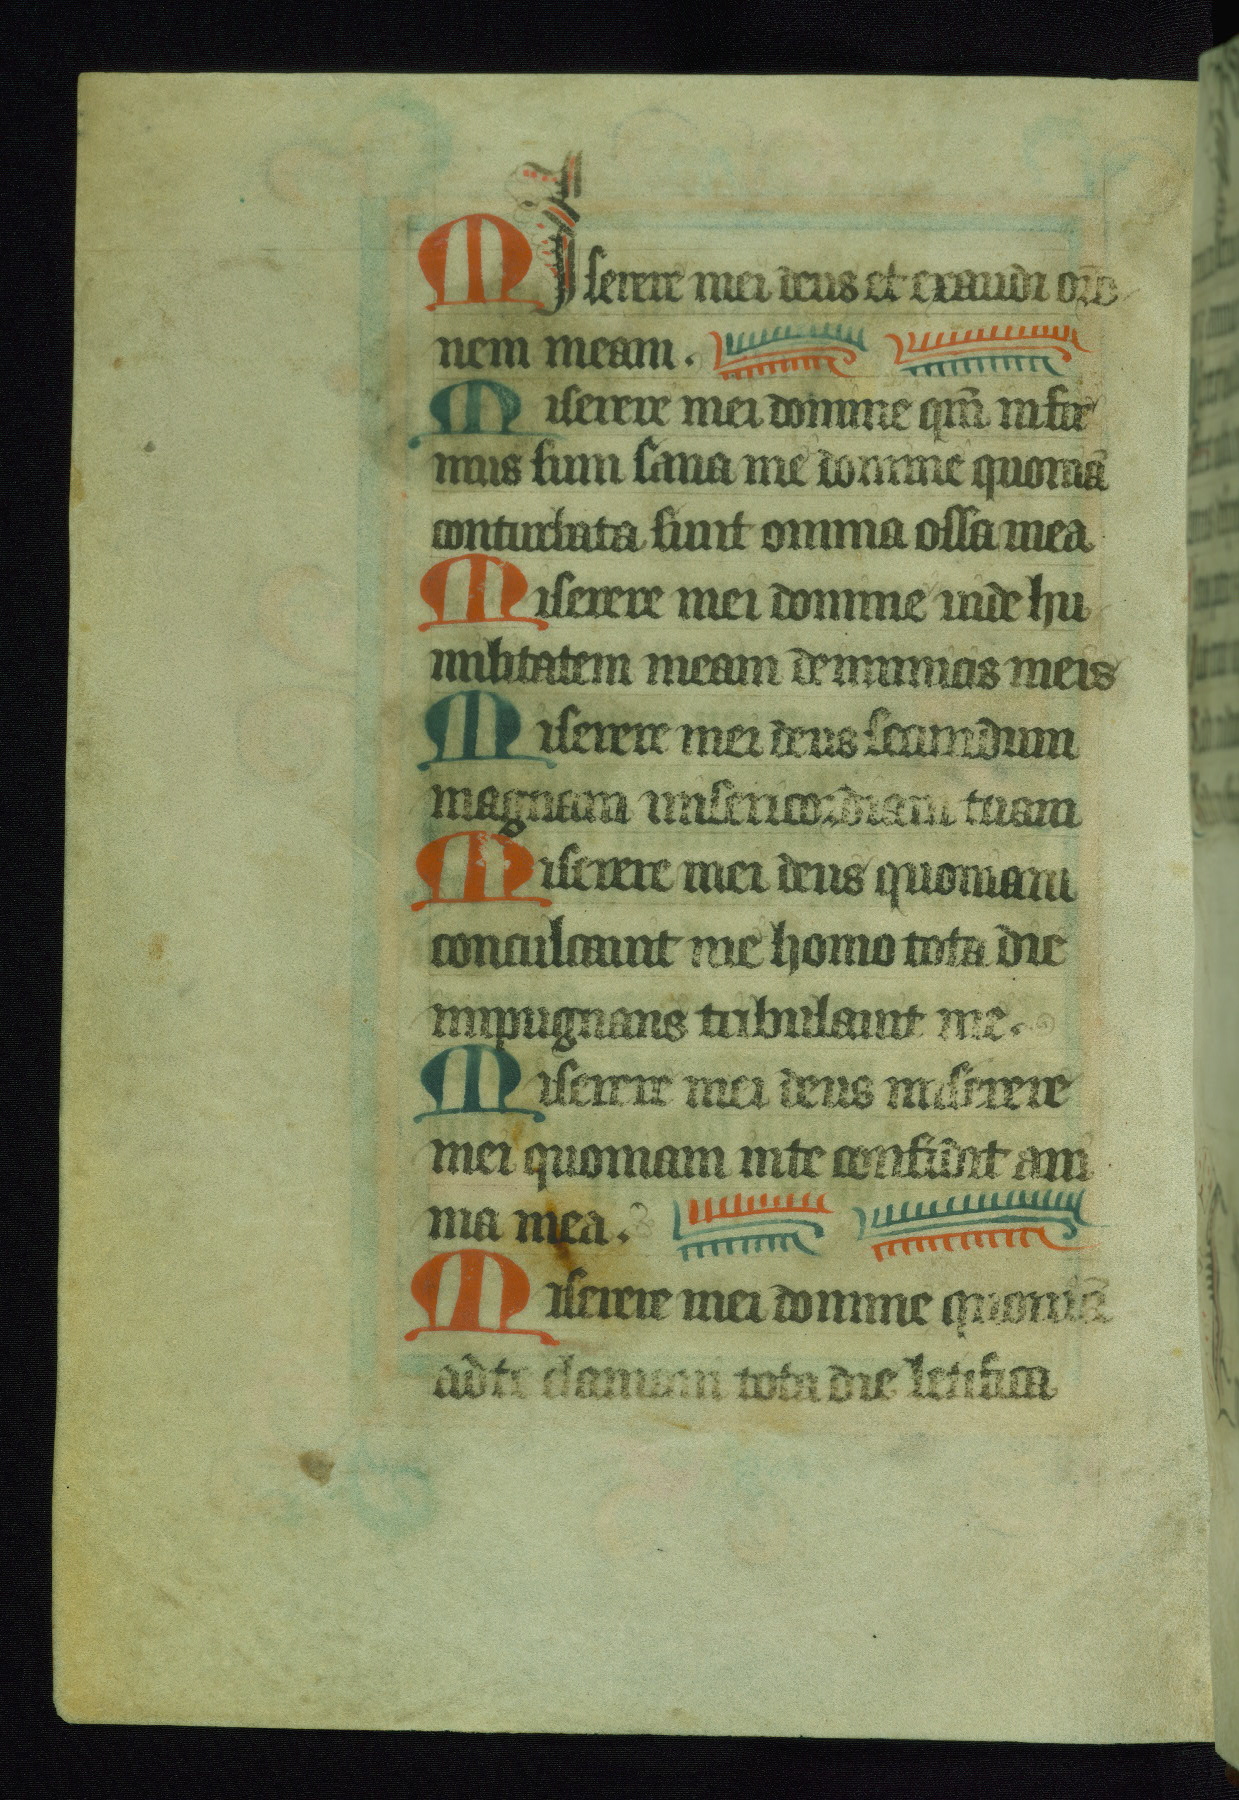 Miserere mei deus et exaudi or̄o
nem meam.
Miserere mei domine qm̄ infir
mus sum sana me domine quoniā
conturbata sunt omnia ossa mea
Miserere mei domine uide hu
militatem meam de inimicis meis
Miserere mei deus secundum
magnam misericordiam tuam
Miserere mei deus quoniam
conculcauit me homo tota die
inpugnans tribulauit me.
Miserere mei deus miserere
mei quoniam in te confidit ani
ma mea.
Miserere mei domine quoniā
ad te clamaui tota die letifica